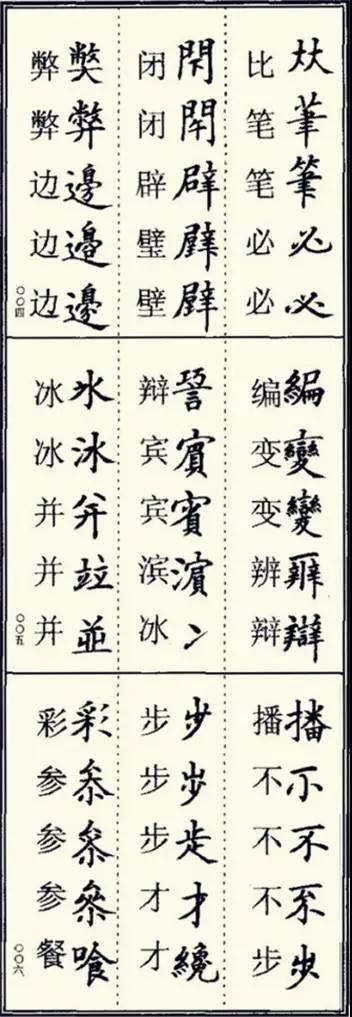 夶茟筆必必
比笔笔必必
閇閉辟
闭闭辟璧壁
獘弊邊邉邊
弊弊边边边
〇〇四
編變變辯
编变变辨辩
賔賓濵冫
辩宾宾滨冰
氷冰并竝並
冰冰并并并
〇〇五
播不不步
播不不不步
步步才纔
步步步才才
彩叅参參喰
彩参参参餐
〇〇六